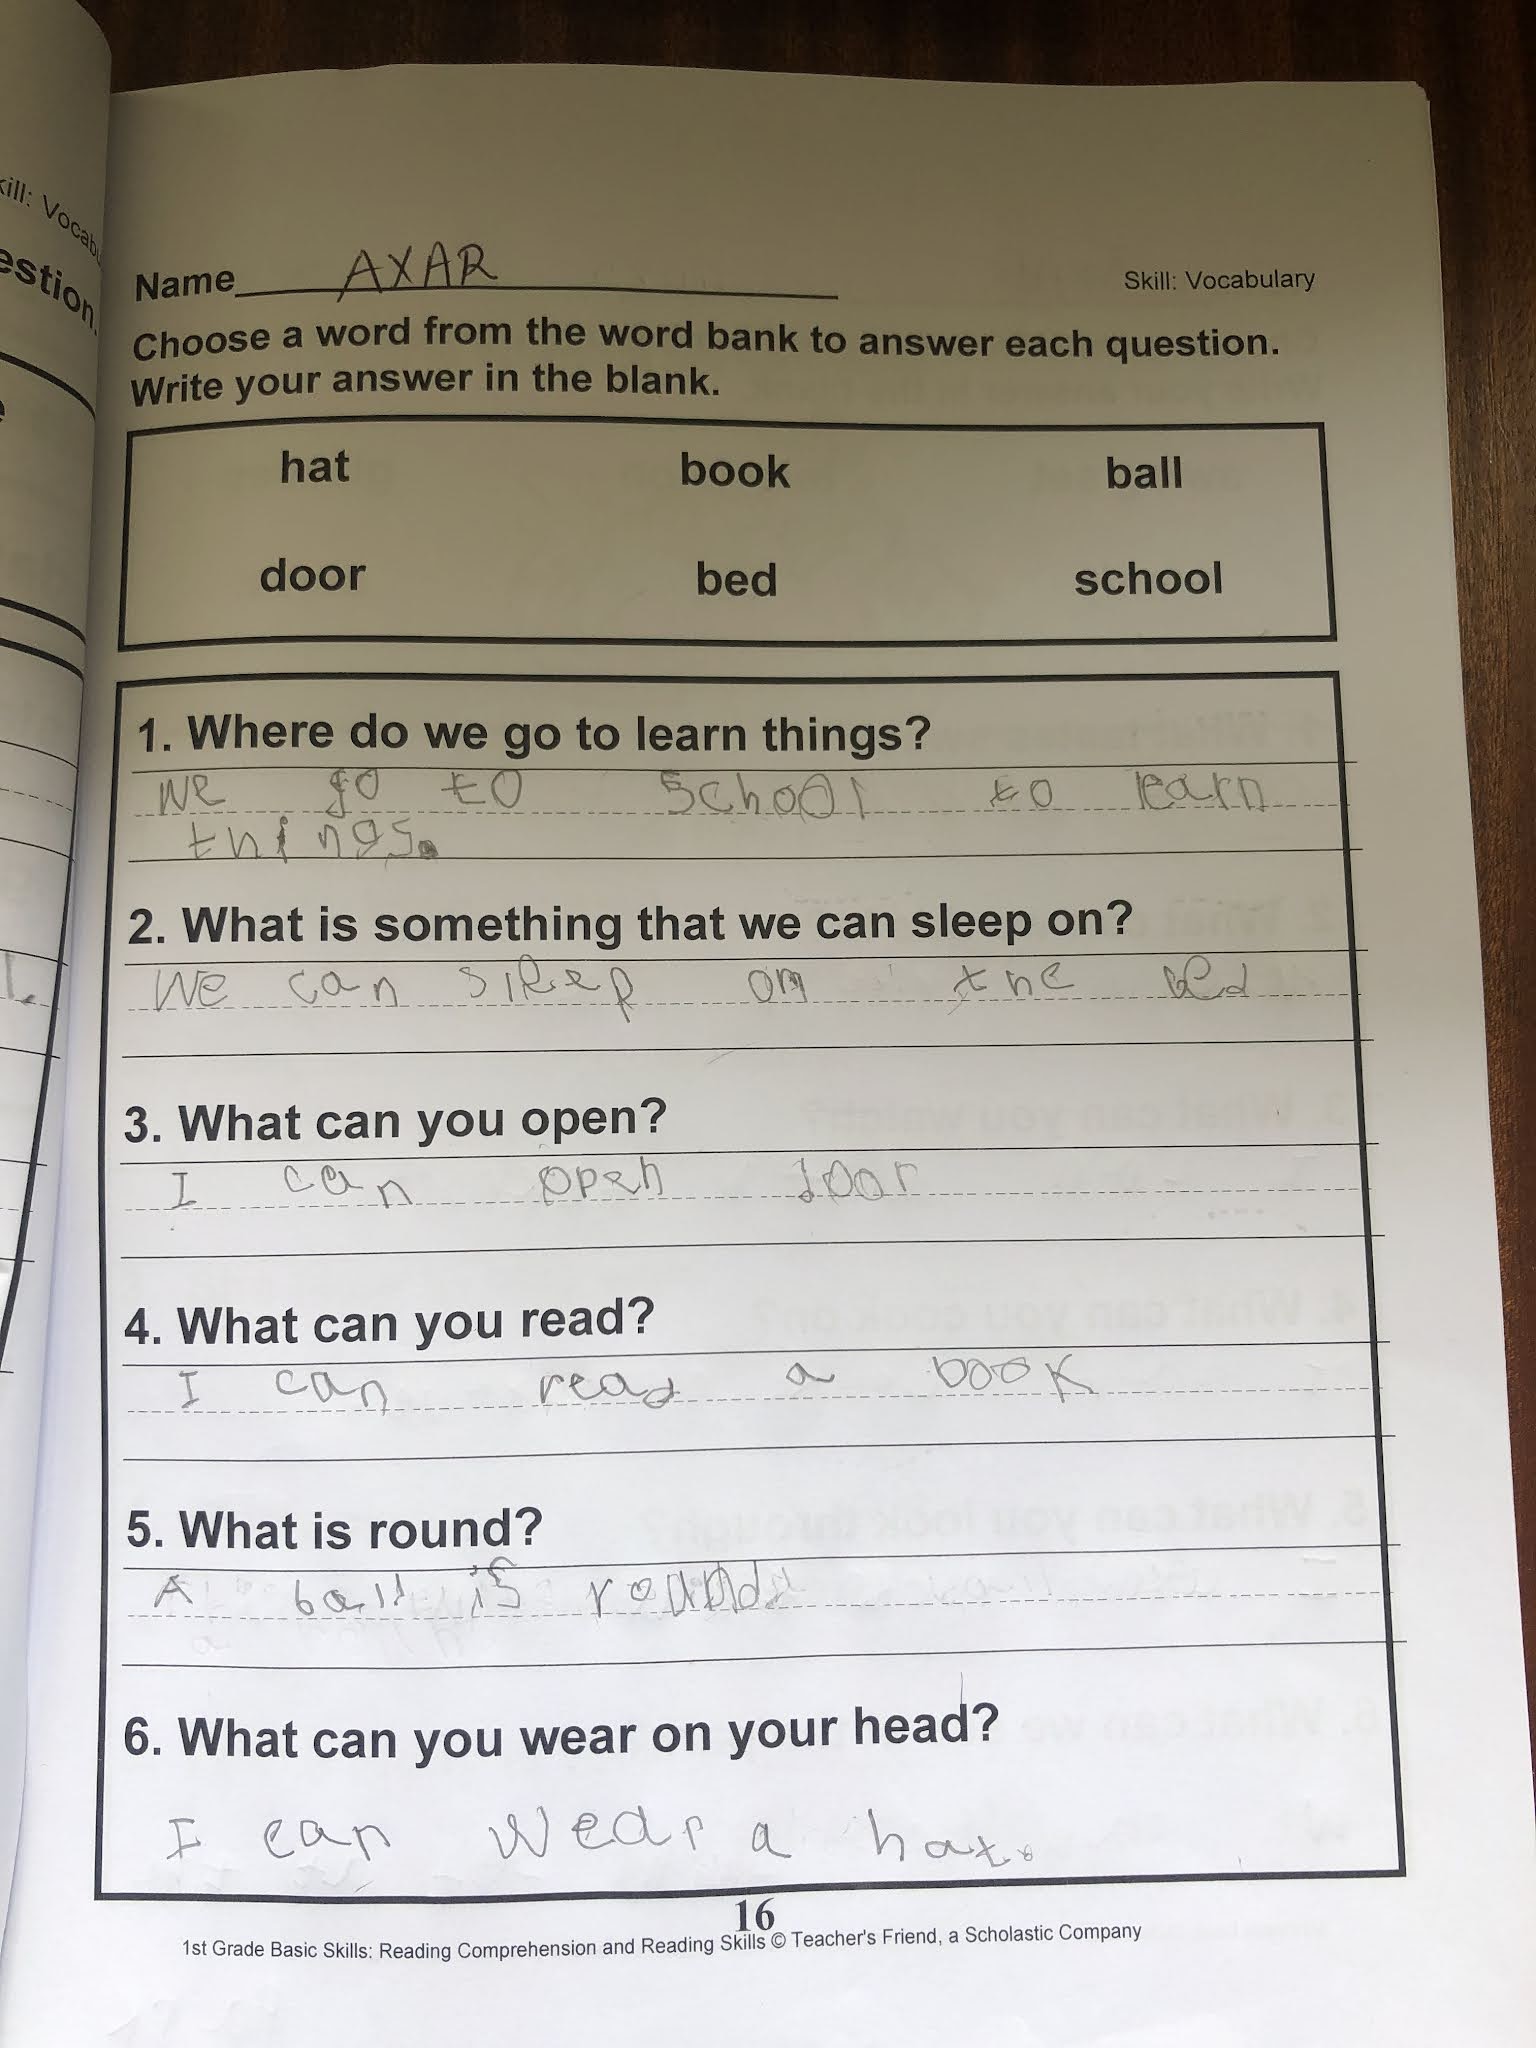 kill: Vocabu
estion.
Name AXAR
Skill: Vocabulary
Choose a word from the word bank to answer each question.
Write your answer in the blank.
hat book ball
door bed school
1. Where do we go to learn things?
We go to school to learn
things.
2. What is something that we can sleep on?
We can sleep on the bed
3. What can you open?
I can open door
4. What can you read?
I can read a book
5. What is round?
A ball is round
6. What can you wear on your head?
I can wear a hat.
16
1st Grade Basic Skills: Reading Comprehension and Reading Skills © Teacher's Friend, a Scholastic Company